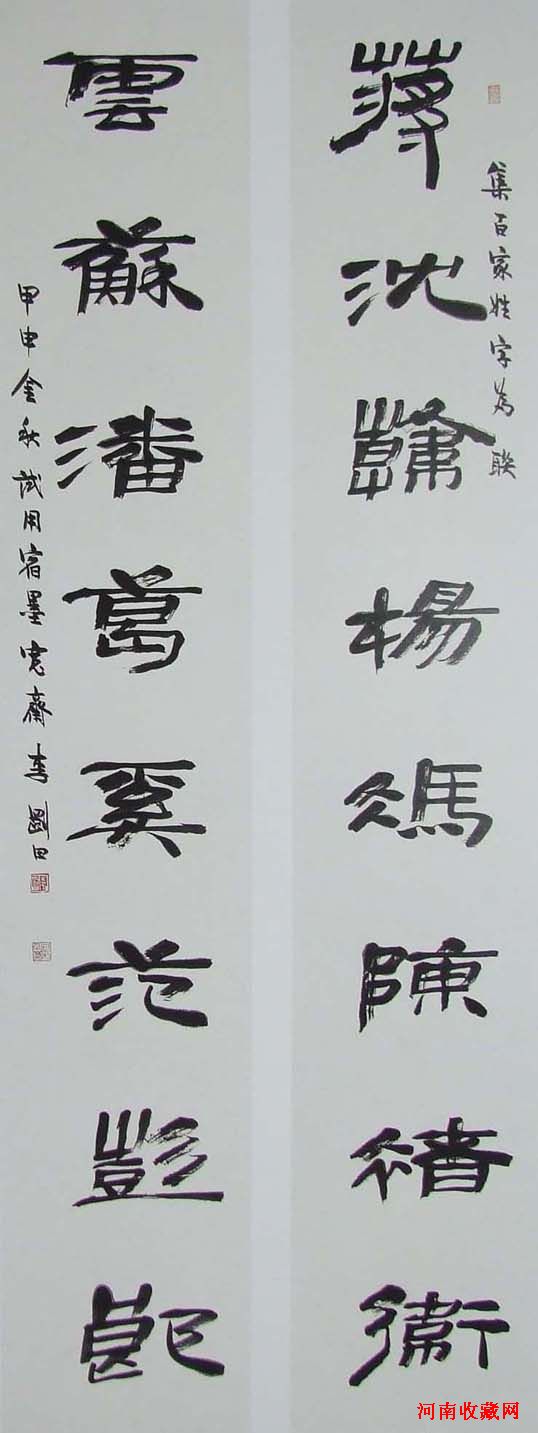 集百家姓字為聯
蔣沈韓楊馮陳褚衛
雲蘇潘葛奚范彭郎
甲申金秋試用宿墨寬齋李劉田
河南收藏网